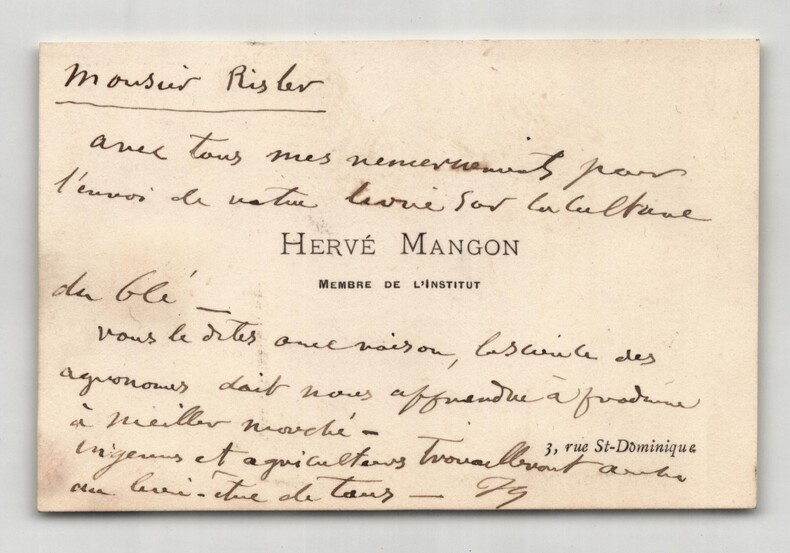 Monsieur Risler
avec tous mes remerciements pour
l'envoi de votre livre sur la culture
HERVÉ MANGON
MEMBRE DE L'INSTITUT
du blé —
vous le dites avec raison, la science des
agronomes doit nous apprendre à produire
à meilleur marché —
3, rue St-Dominique
et agriculteurs travailleront
au bien-être de tous —